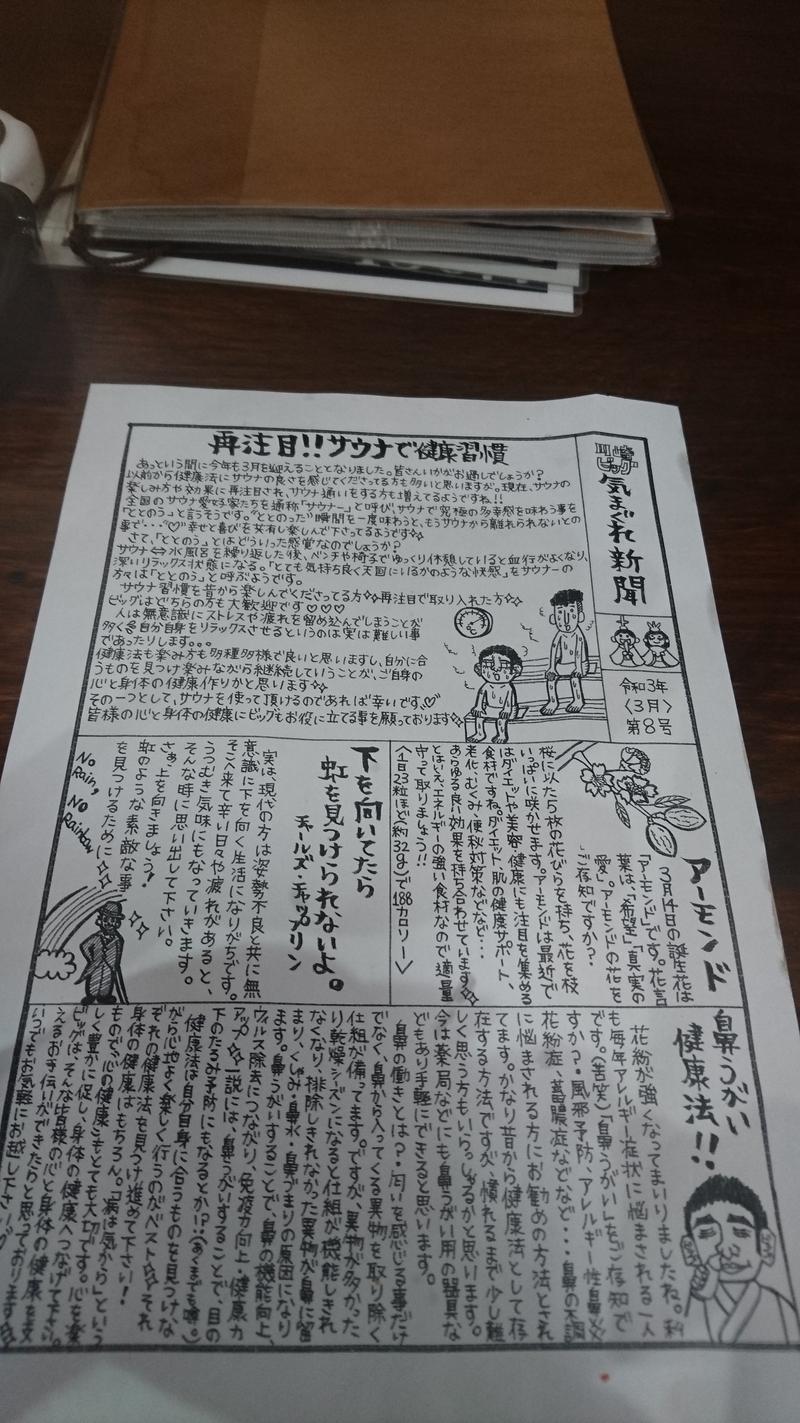 川崎
ビッグ
気まぐれ新聞
令和3年
〈3月〉
第8号
再注目!!サウナで健康習慣
あっという間に今年も3月を迎えることとなりました。皆さんいかがお過しでしょうか?
以前から健康法にサウナの良さを感じてくださってる方も多いと思いますが。現在、サウナの
楽しみ方や効果に再注目され、サウナ通いをする方も増えてるようですね!!
全国のサウナ愛好家たちを通称「サウナー」と呼び、サウナで究極の多幸感を味わう事を
"ととのう"と言うそうです。"ととのった"瞬間を一度味わうと、もうサウナから離れられないとの
事で・・・♡幸せと喜びを共有し楽しんで下さってるようです✧✧
さて、「ととのう」とはどういった感覚なのでしょうか?
サウナ⇔水風呂を繰り返した後、ベンチや椅子でゆっくり休憩していると血行がよくなり、
深いリラックス状態になる。「とても気持ち良く天国にいるかのような快感」をサウナーの
方々は「ととのう」と呼ぶようです。
サウナ習慣を昔から楽しんでくださってる方✧✧再注目で取り入れた方✧✧
ビッグはどちらの方も大歓迎です♡♡♡
人は無意識にストレスや疲れを留め込んでしまうことが
多く各自分自身をリラックスさせるというのは実は難しい事
であったりします。。。
健康法も楽み方も多種多様で良いと思いますし、自分に合
うものを見つけ楽みながら継続していうことが、ご自身の
心と身体の健康作りかと思います✧✧
その一つとして、サウナを使って頂けるのであれば幸いです♡
皆様の心と身体の健康にビッグもお役に立てる事を願っております✧✧
アーモンド
3月14日の誕生花は
アーモンドです。花言
葉は、「希望」「真実の
愛」。アーモンドの花を
ご存知ですか?
桜に似た5枚の花びらを持ち、花を枝
いっぱいに咲かせます。アーモンドは最近で
はダイエットや美容・健康にも注目を集める
食材ですね。ダイエット、肌の健康サポート、
老化、むくみ、便秘対策などなど・・・
あらゆる良い効果を持ち合わせています✧✧
とはいえ、エネルギーの強い食材なので適量
守って取りましょう!!
〈1日23粒ほど(約32g)で188カロリー〉
下を向いてたら
虹を見つけられないよ。
チャールズ・チャップリン
実は、現代の方は姿勢不良と共に無
意識に下を向く生活になりがちです。
そこへ来て辛い日々や疲れがあると、
うつむき気味にもなっていきます。
そんな時に思い出して下さい。
さぁ、上を向きましょう!
虹のような素敵な事
を見つけるために✧✧
No Rain, No Rainbow
鼻うがい
健康法!!
花粉が強くなってまいりましたね。私
も毎年アレルギー症状に悩まされる一人
です。(苦笑)「鼻うがい」をご存知で
すか?風邪予防、アレルギー性鼻炎
花粉症、蓄膿症などなど・・・鼻の不調
に悩まされる方にお勧めの方法とされ
てます。かなり昔から健康法として存
在する方法ですが、慣れるまで少し難
しく思う方もいらっしゃるかと思います。
今は薬局などにも鼻うがい用の器具な
どもあり手軽にできると思います。
鼻の働きとは?・匂いを感じる事だけ
でなく、鼻から入ってくる異物を取り除く
仕組が備ってます。ですが、異物が多かった
り乾燥シーズンになると仕組が機能しきれ
なくなり、排除しきれなかった異物が鼻に留
まり、くしゃみ・鼻水・鼻づまりの原因になり
ます。鼻うがいすることで、鼻の機能向上、
ウルス除去につながり、免疫力向上・健康力
アップ✧✧一説には、鼻うがいすることで、目の
下のたるみ予防にもなるとか!?(あくまでも噂。)
健康法は自分自身に合うものを見つけ、な
がら心地よく楽しく行うのがベスト✧✧それ
ぞれの健康法を見つけ進めて下さい!
身体の健康はもちろん。「病は気から」という
もので、心の健康こそとても大切です。心を楽
しく豊かに促し、身体の健康へつなげて下さい。
ビッグは、そんな皆様の心と身体の健康を支
えるお手伝いができたらと思っております✧✧
いつでもお気軽にお越し下さい